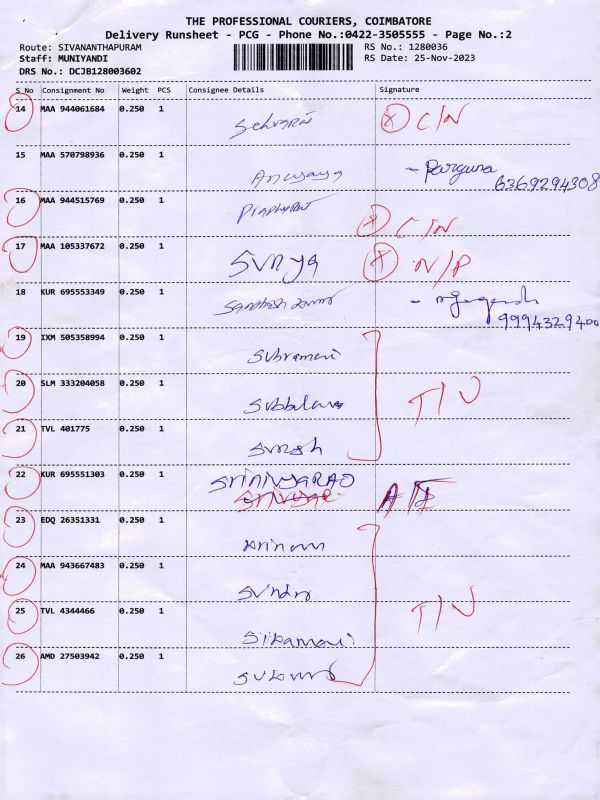 THE PROFESSIONAL COURIERS, COIMBATORE
Delivery Runsheet - PCG - Phone No.:0422-3505555 - Page No.:2
Route: SIVANANTHAPURAM RS No.: 1280036
Staff: MUNIYANDI RS Date: 25-Nov-2023
DRS No.: DCJB128003602
S No Consignment No Weight PCS Consignee Details Signature
14 MAA 944061684 0.250 1 C/N
15 MAA 570798936 0.250 1
6369294308
16 MAA 944515769 0.250 1 C/N
17 MAA 105337672 0.250 1 Surya N/P
18 KUR 695553349 0.250 1
9994329400
19 IXM 505358994 0.250 1
Subramani
20 SLM 333204058 0.250 1 T/N
21 TVL 401775 0.250 1
Suresh
22 KUR 695551303 0.250 1
23 EDQ 26351331 0.250 1
24 MAA 943667483 0.250 1
25 TVL 4344466 0.250 1 T/N
Sikamani
26 AMD 27503942 0.250 1